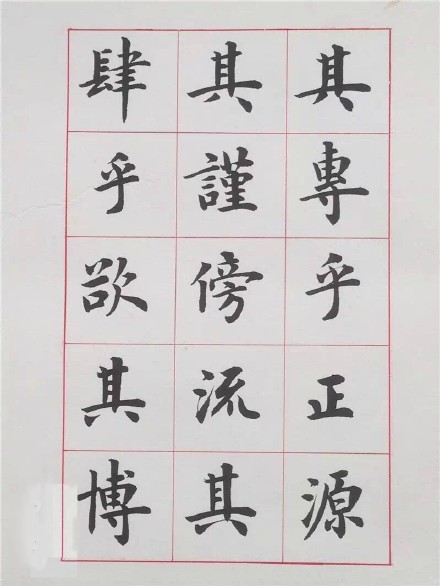 其專乎正源
其謹傍流其
肆乎欲其博